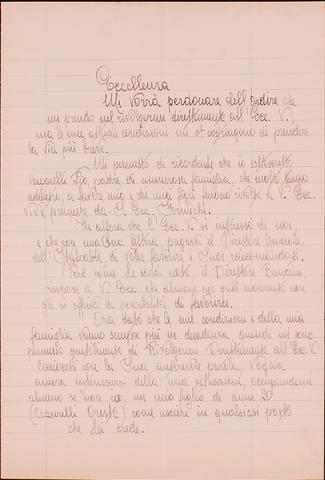 Eccellenza
Mi vorrà perdonare dell'ardire che
mi prendo nel rivolgermi direttamente all'Ecc. V.,
ma le mie attuali condizioni mi costringono di prendere
la via più breve.
Mi permetto di ricordarle che io sottoscritto
Ceccarelli Pio, padre di numerosa famiglia, che molto tempo
addietro, a favore mio e dei miei figli furono rivolte a V. Ecc.
vive premure da S. Ecc.
Fu allora che l'Ecc. V. si interessò di noi
e che con una Sua lettera, pregato il Direttore Generale
dell' di voler favorire i Suoi raccomandati.
Però come Le sarà noto il Direttore
rispose a V. Ecc. che almeno per quel momento non
gli si offriva la possibilità di favorire.
Ora dato che le mie condizioni e della mia
famiglia vanno sempre più in decadenza, quindi mi sono
permesso gentilmente di Rivolgermi Direttamente all'Ecc. V.
con la Sua autorevole parola, Voglia
ancora interessarsi della mia situazione, occupandomi
almeno se non io, un mio figlio di anni 20
(Ceccarelli Oreste) come usciere in qualsiasi posto
che Lei crede.